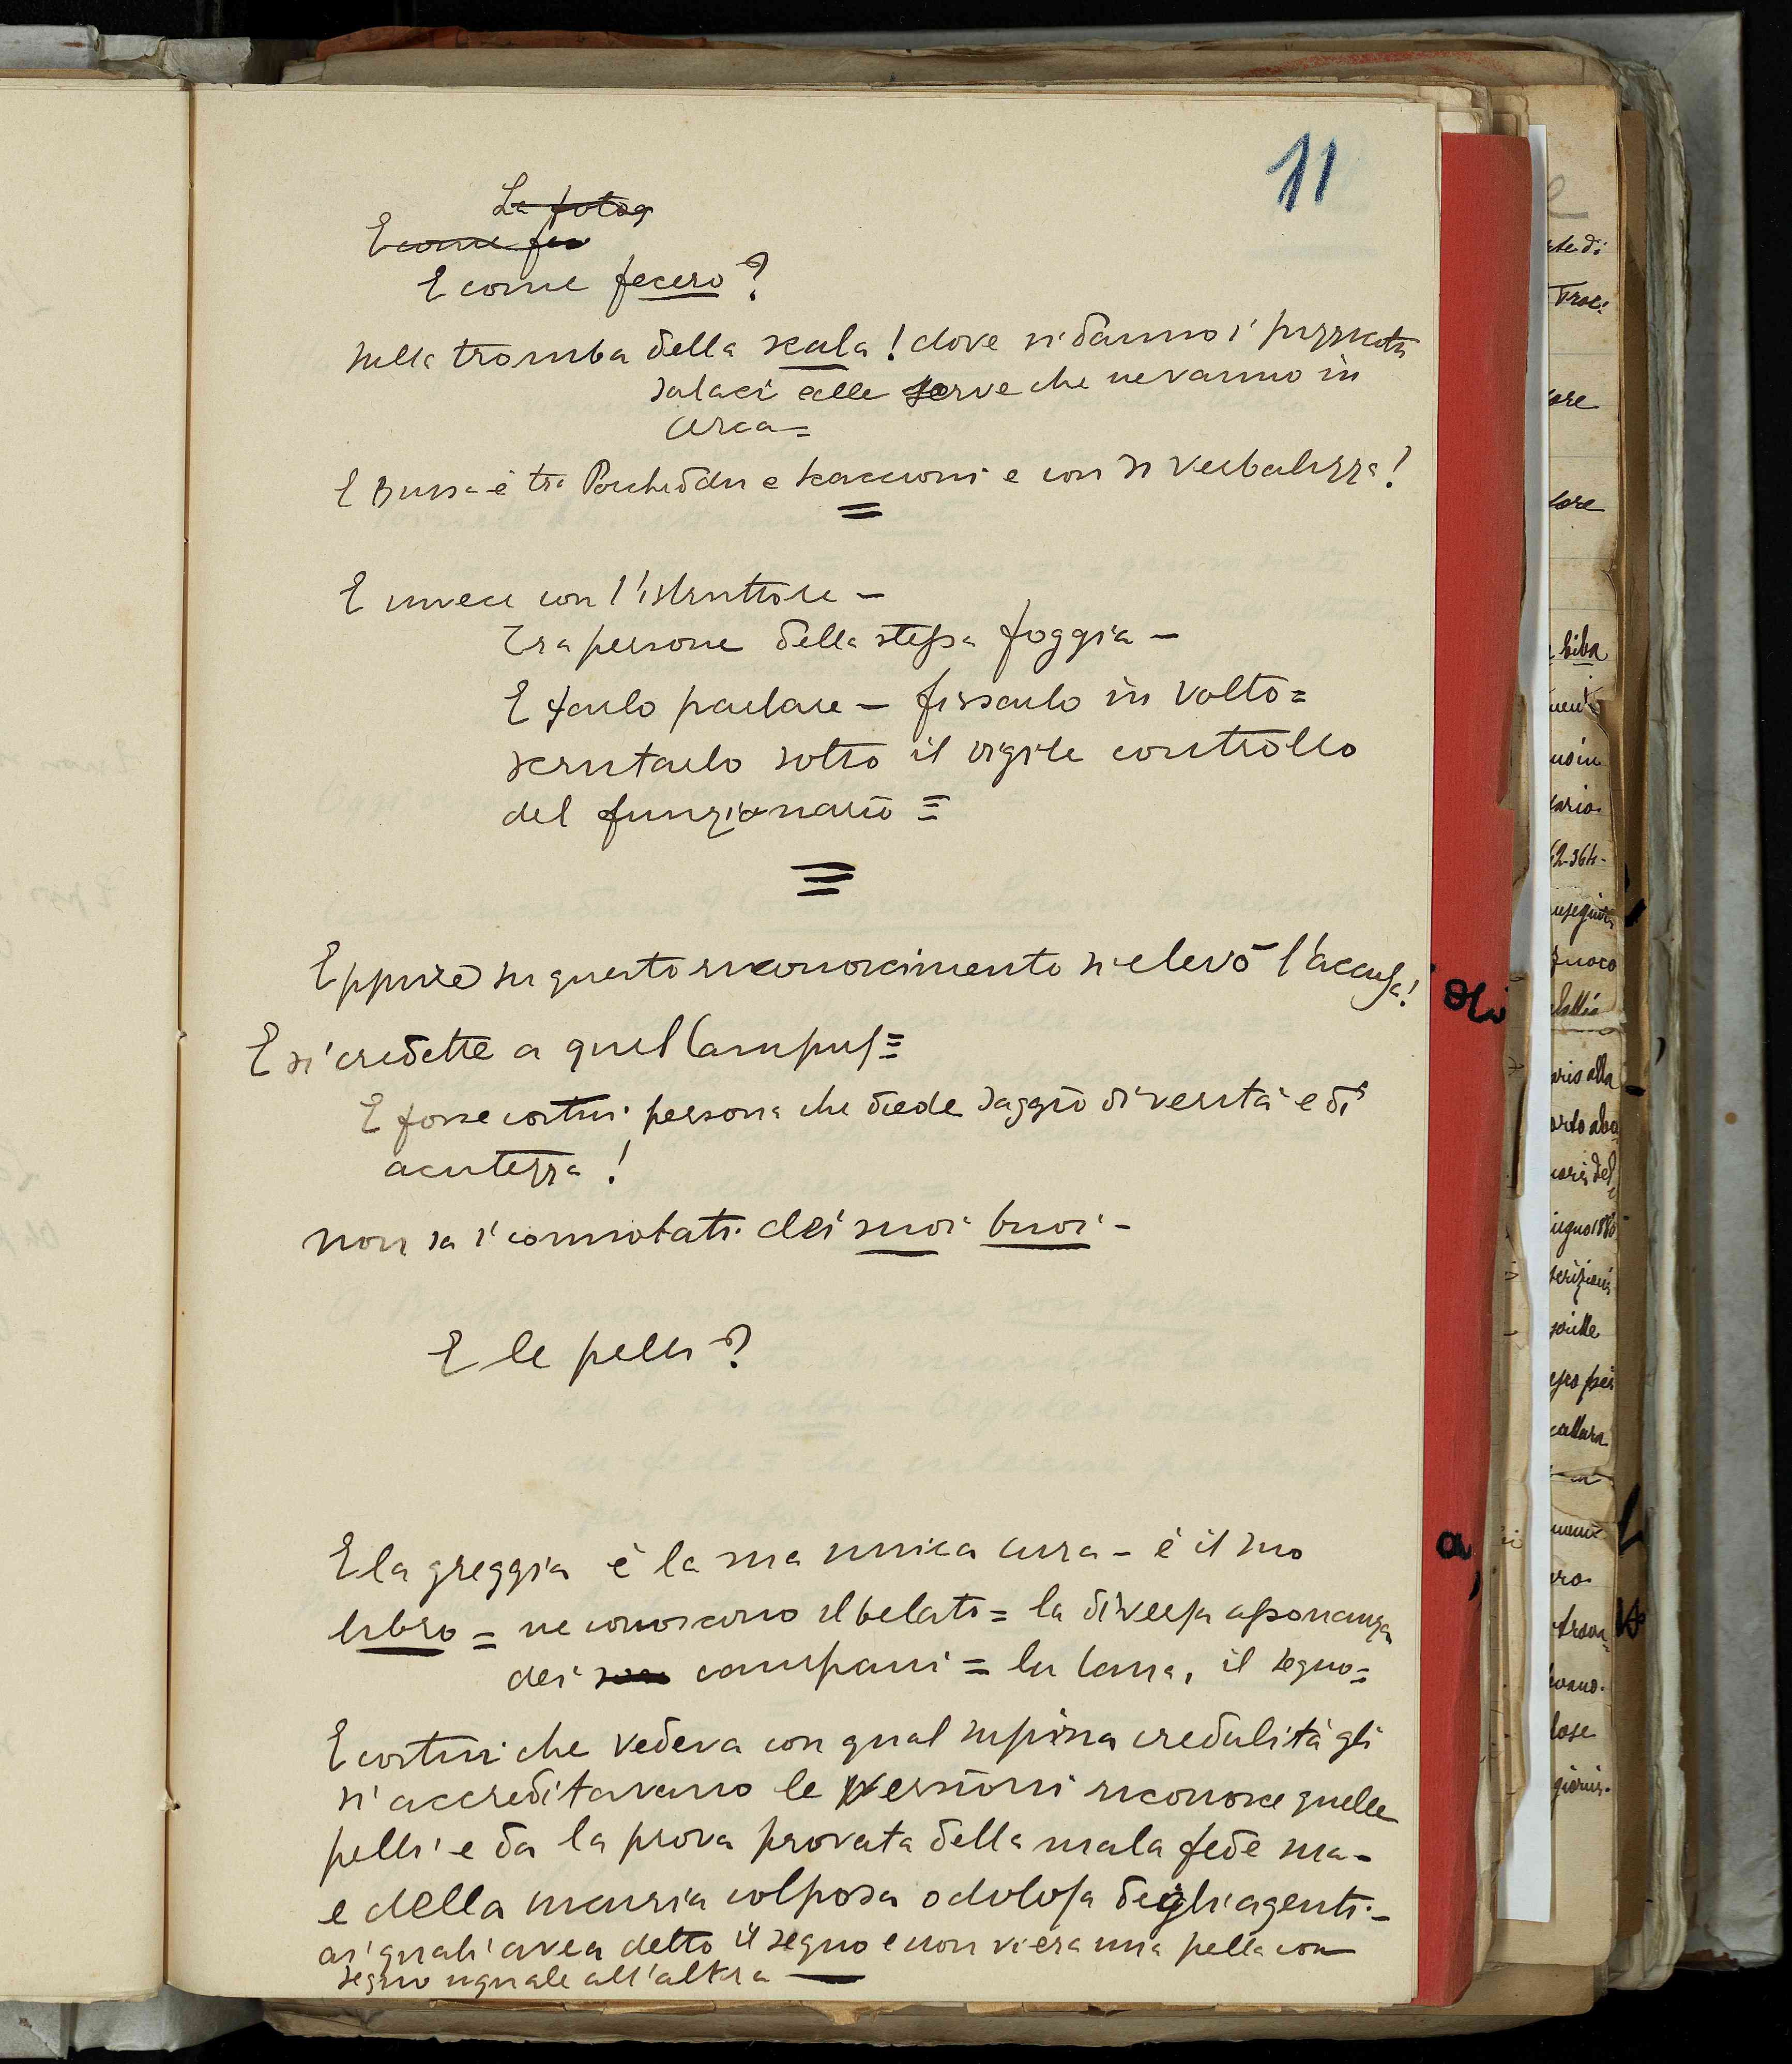 11
La fotog
E come fec
E come fecero?
nella tromba della scala! dove si danno i pizzicotti
salaci alle serve che ne vanno in
cerca =
E Bussa è tra Porcheddu e Scaccioni e con si verbalizza!
E invece con l'istruttore -
tra persone della stessa foggia -
E farlo parlare - fissarlo in volto =
scrutarlo sotto il vigile controllo
del funzionario =
Eppure su questo riconoscimento si elevò l'accusa!
E si credette a quel Campus =
E fosse costui persona che diede saggio di verità e di
acutezza!
non sa i connotati dei suoi buoi -
E le pelli?
E la greggia è la sua unica cura - è il suo
libro = ne conoscono il belato = la diversa assonanza
dei campani = la lana, il segno =
E costui che vedeva con qual supina credulità gli
si accreditavano le versioni riconosce quelle
pelli e da la prova provata della mala fede sua -
e della incuria colposa o dolosa degli agenti -
ai quali avea detto il segno e non vi era una pelle con
segno uguale all'altra